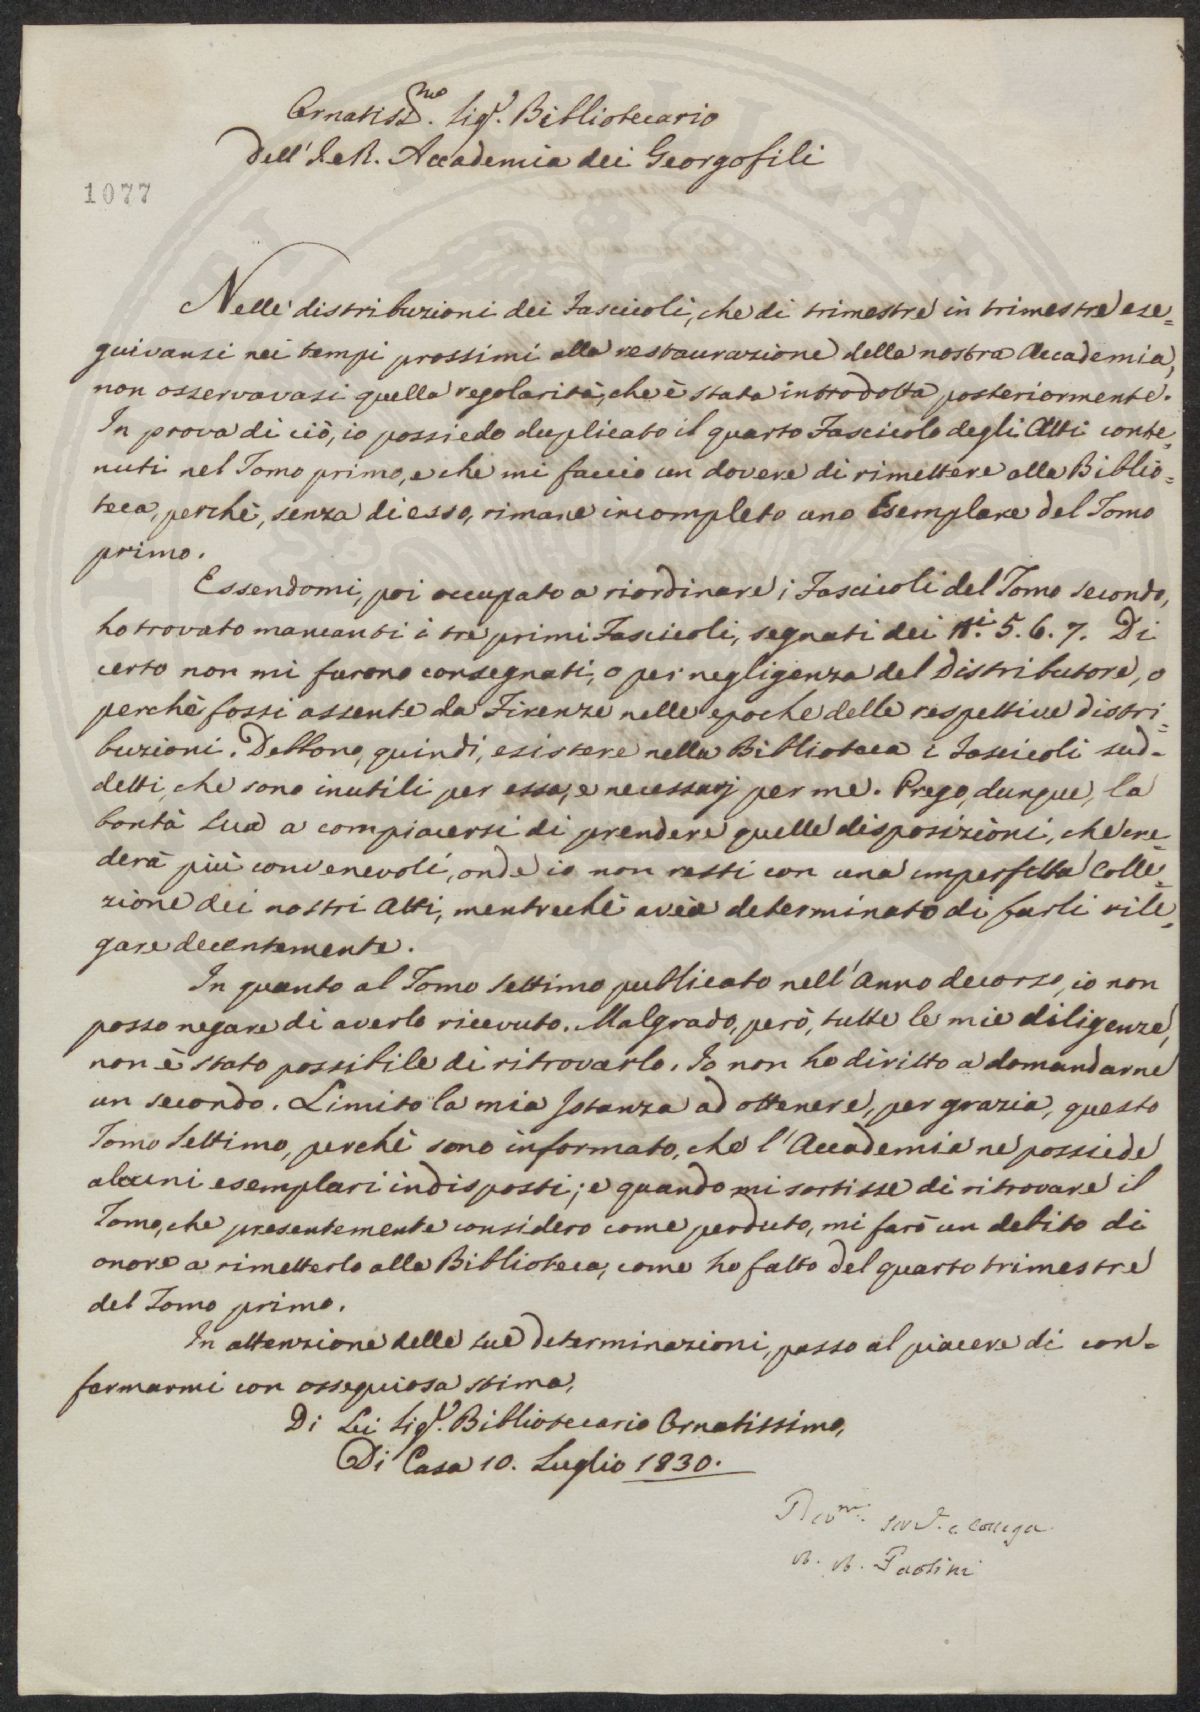 Ornatiss.mo Sig.r Bibliotecario
Dell' I. e R. Accademia dei Georgofili
1077
Nelle distribuzioni dei Fascicoli, che di trimestre in trimestre ese=
guivansi nei tempi prossimi alla restaurazione della nostra Accademia,
non osservavasi quella regolarità, che è stata introdotta posteriormente.
In prova di ciò, io possiedo duplicato il quarto Fascicolo degli Atti conte=
nuti nel Tomo primo, e che mi faccio un dovere di rimettere alla Biblio=
teca, perchè, senza di esso, rimane incompleto uno Esemplare del Tomo
primo.
Essendomi, poi occupato a riordinare i Fascicoli del Tomo secondo,
ho trovato mancanti i tre primi Fascicoli, segnati dei N.i 5. 6. 7. Di
certo non mi furono consegnati, o per negligenza del Distributore, o
perchè fossi assente da Firenze nelle epoche delle respettive distri=
buzioni. Debbono, quindi, esistere nella Biblioteca i Fascicoli sud=
detti, che sono inutili per essa, e necessarj per me. Prego, dunque, la
bontà Sua a compiacersi di prendere quelle disposizioni, che cre=
derà più convenevoli, onde io non resti con una imperfetta Colle=
zione dei nostri Atti, mentrechè avea determinato di farli rile=
gare decentemente.
In quanto al Tomo Settimo publicato nell' Anno decorso, io non
posso negare di averlo ricevuto. Malgrado, però, tutte le mie diligenze,
non è stato possibile di ritrovarlo. Io non ho diritto a domandarne
un secondo. Limito la mia Istanza ad ottenere, per grazia, questo
Tomo Settimo, perchè sono informato, che l' Accademia ne possiede
alcuni esemplari indisposti; e quando mi sortisse di ritrovare il
Tomo, che presentemente considero come perduto, mi farò un debito di
onore a rimetterlo alla Biblioteca, come ho fatto del quarto trimestre
del Tomo primo.
In attenzione delle sue Determinazioni, passo al piacere di con=
farmarmi con ossequiosa stima,
Di Lei Sig.r Bibliotecario Ornatissimo,
Di Casa 10. Luglio 1830.
Dev.mo Serv.e e Collega
Paolini